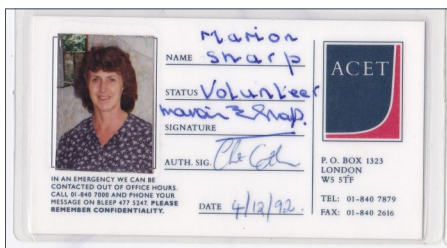 Marion
NAME Sharp
STATUS Volunteer
SIGNATURE
AUTH. SIG.
DATE 4/12/92
IN AN EMERGENCY WE CAN BE
CONTACTED OUT OF OFFICE HOURS.
CALL 01-840 7000 AND PHONE YOUR
MESSAGE ON BLEEP 477 5247. PLEASE
REMEMBER CONFIDENTIALITY.
ACET
P. O. BOX 1323
LONDON
W5 5TF
TEL: 01-840 7879
FAX: 01-840 2616